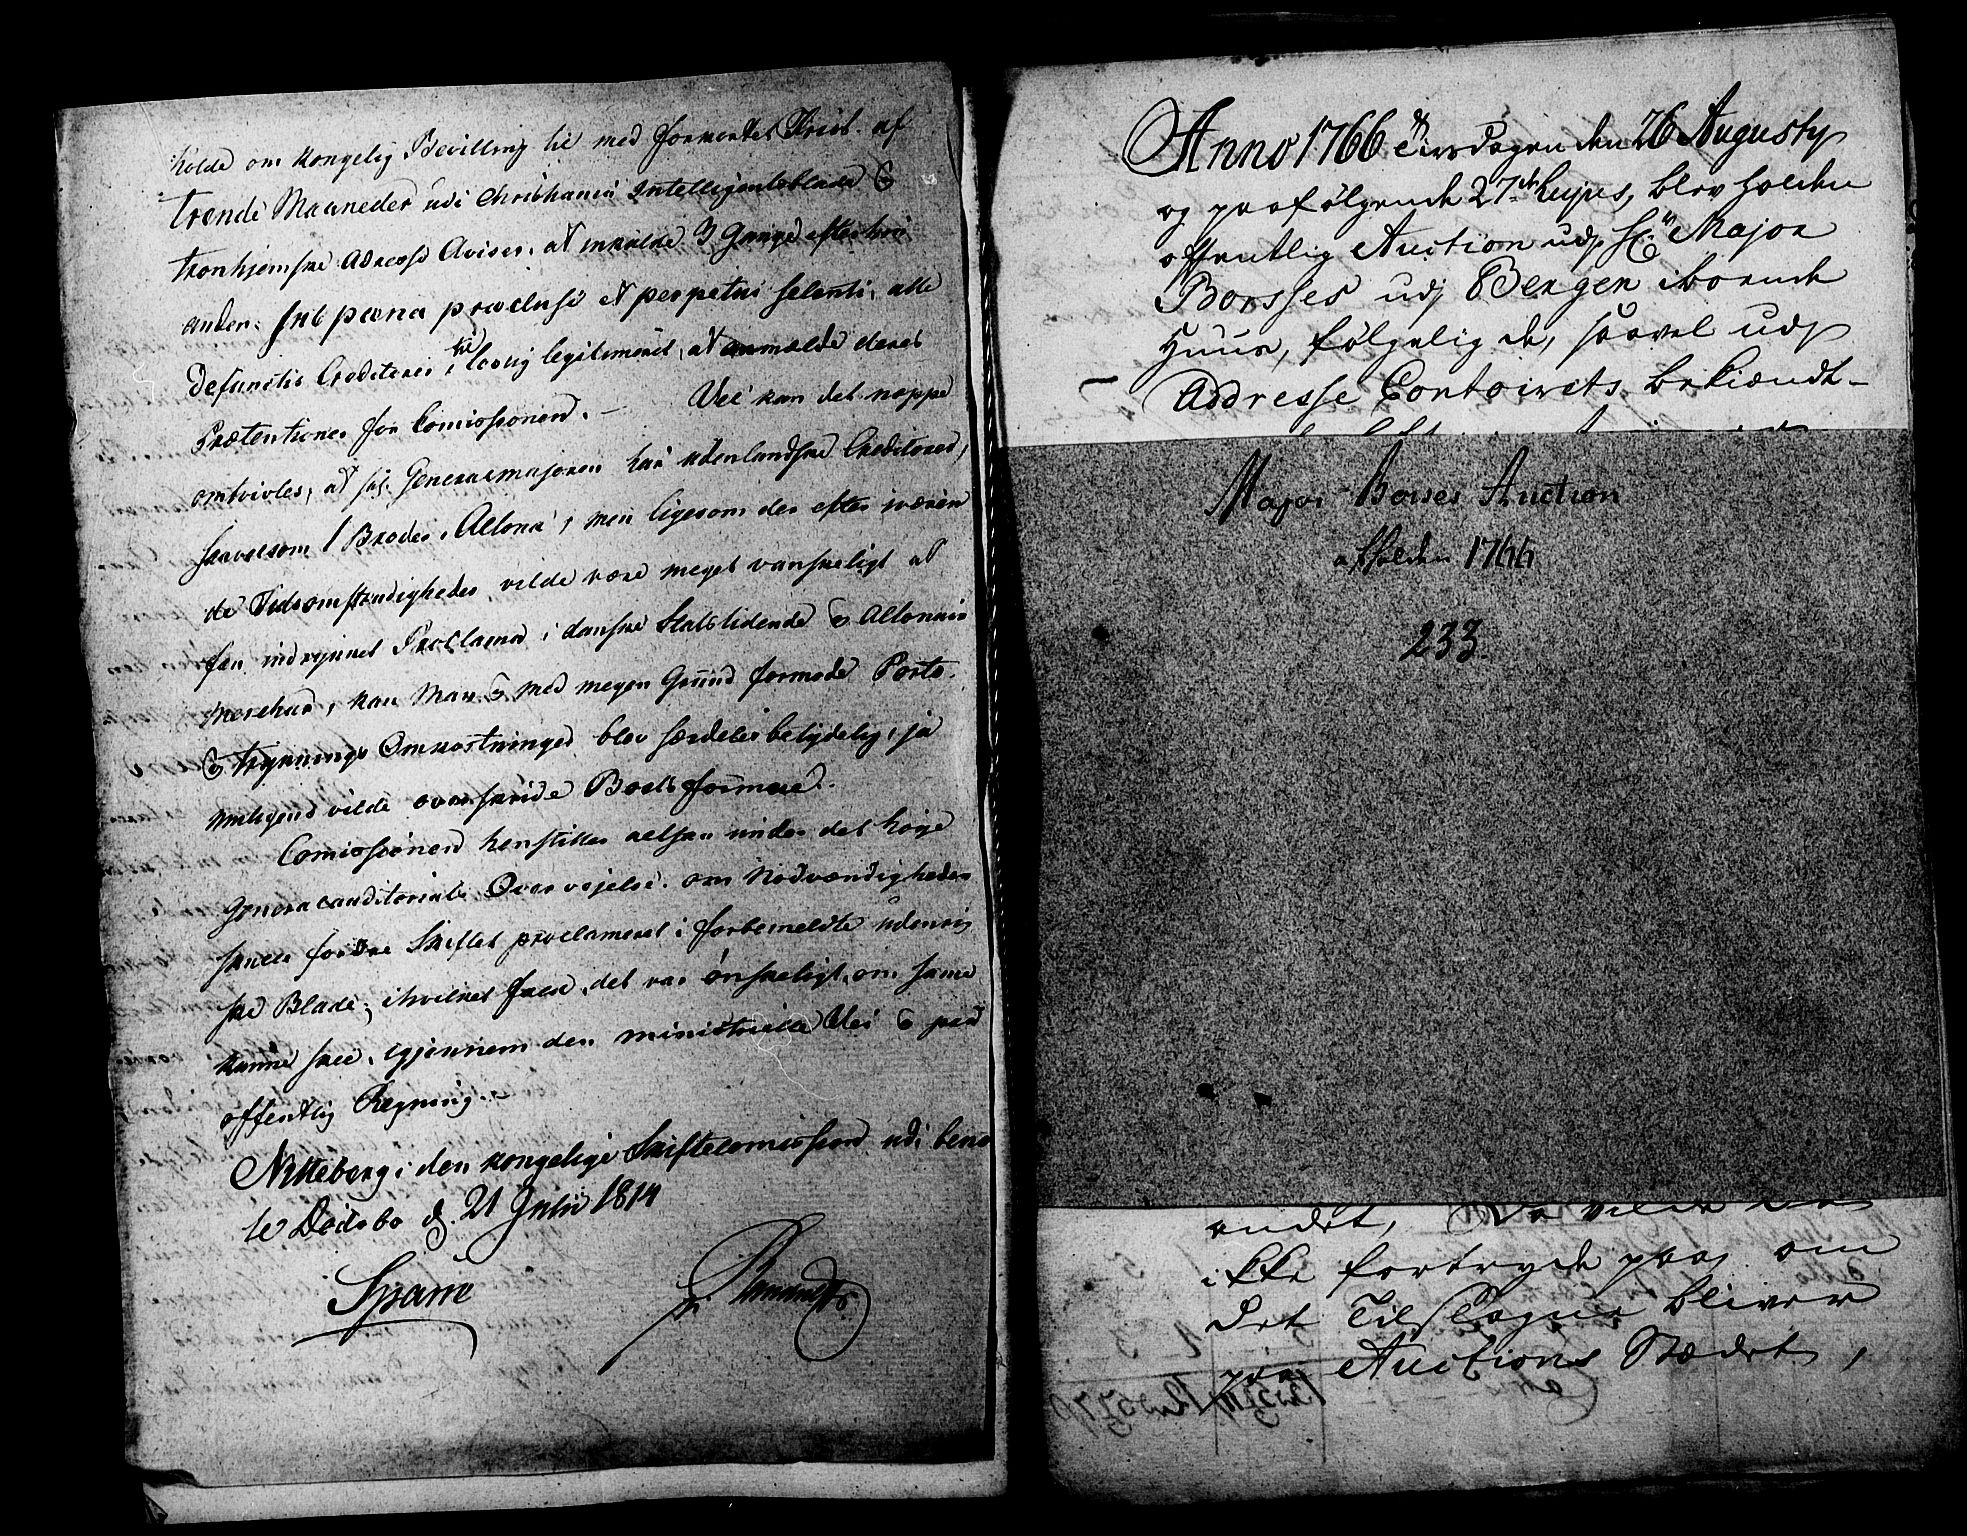 holde om kongelig Bevilling til med forkortet Frist af
trende Maaneder udi Christiania Intelligentsblade &
tronhjemske Adresse Aviser, at indkalde 3 Gange efter hin
anden, sub poena præclusi et perpetui silentii, alle
defuncti Creditorer, til lovlig legitimeret, at anmælde deres
Prætentioner for Comissionen. – Vel kan det neppe
omtvivles, at sal. Generalmajoren har udenlandske Creditorer,
saavelsom 1 Broder i Altona, men ligesom det efter nværen
de Tidsomstændigheder vilde være meget vanskeligt at
faae indrykket Proclama i danske Statstidende & Altonaer
Merchur, kan Man & med megen Grund formode Porto
& tryknings Omkostninger blev særdeles betydelig, ja
muligens vilde overskride Boets formue.
Comissionen henstiller altsaa under det høje
Generalauditoriats Overvejelse, om Nødvændigheden
skulle fordre Skiftet proclameret i forbemeldte udenrig
ske Blade; i hvilket Fald, det var ønskeligt, om samme
kunne skee, igjennem den ministrielle Vei & paa
offentlig Regning.
Nitteberg i den kongelige Skiftecomission udi bem
te Dødsbo d. 21 Julii 1814
Spare
Anno 1766 Tirsdagen den 26 Augusty
og paafølgende 27de hujus, blev holden
offentlig Auction udj Hr Major
Borsses udj Bergen iboende
Huus, følgelig de, saavel udj
Addresse Contoirets bekiendt-
Major Borses Auction
afholden 1766
233.
andet, Da vilde
ikke fortryde paa, om
det Tilslagne bliver
paa Auctions Stædet,